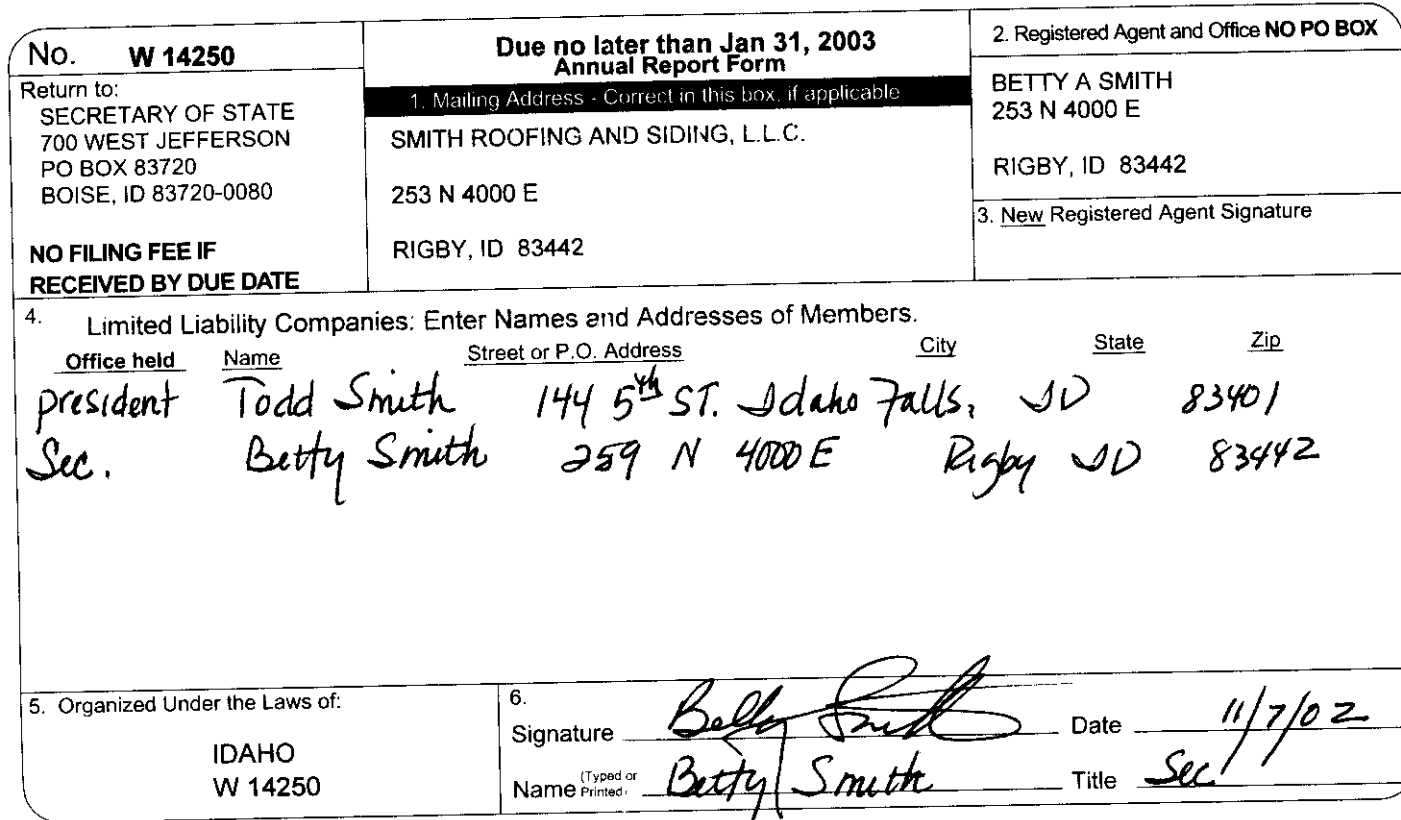 No. W 14250
Return to:
SECRETARY OF STATE
700 WEST JEFFERSON
PO BOX 83720
BOISE, ID 83720-0080
NO FILING FEE IF
RECEIVED BY DUE DATE
Due no later than Jan 31, 2003
Annual Report Form
1. Mailing Address - Correct in this box, if applicable
SMITH ROOFING AND SIDING, L.L.C.
253 N 4000 E
RIGBY, ID 83442
2. Registered Agent and Office NO PO BOX
BETTY A SMITH
253 N 4000 E
RIGBY, ID 83442
3. New Registered Agent Signature
4. Limited Liability Companies: Enter Names and Addresses of Members.
Office held Name Street or P.O. Address City State Zip
president Todd Smith 144 5th ST. Idaho Falls, ID 83401
Sec. Betty Smith 259 N 4000 E Rigby ID 83442
5. Organized Under the Laws of:
IDAHO
W 14250
6.
Signature Betty Smith Date 11/7/02
Name (Typed or Printed) Betty Smith Title Sec